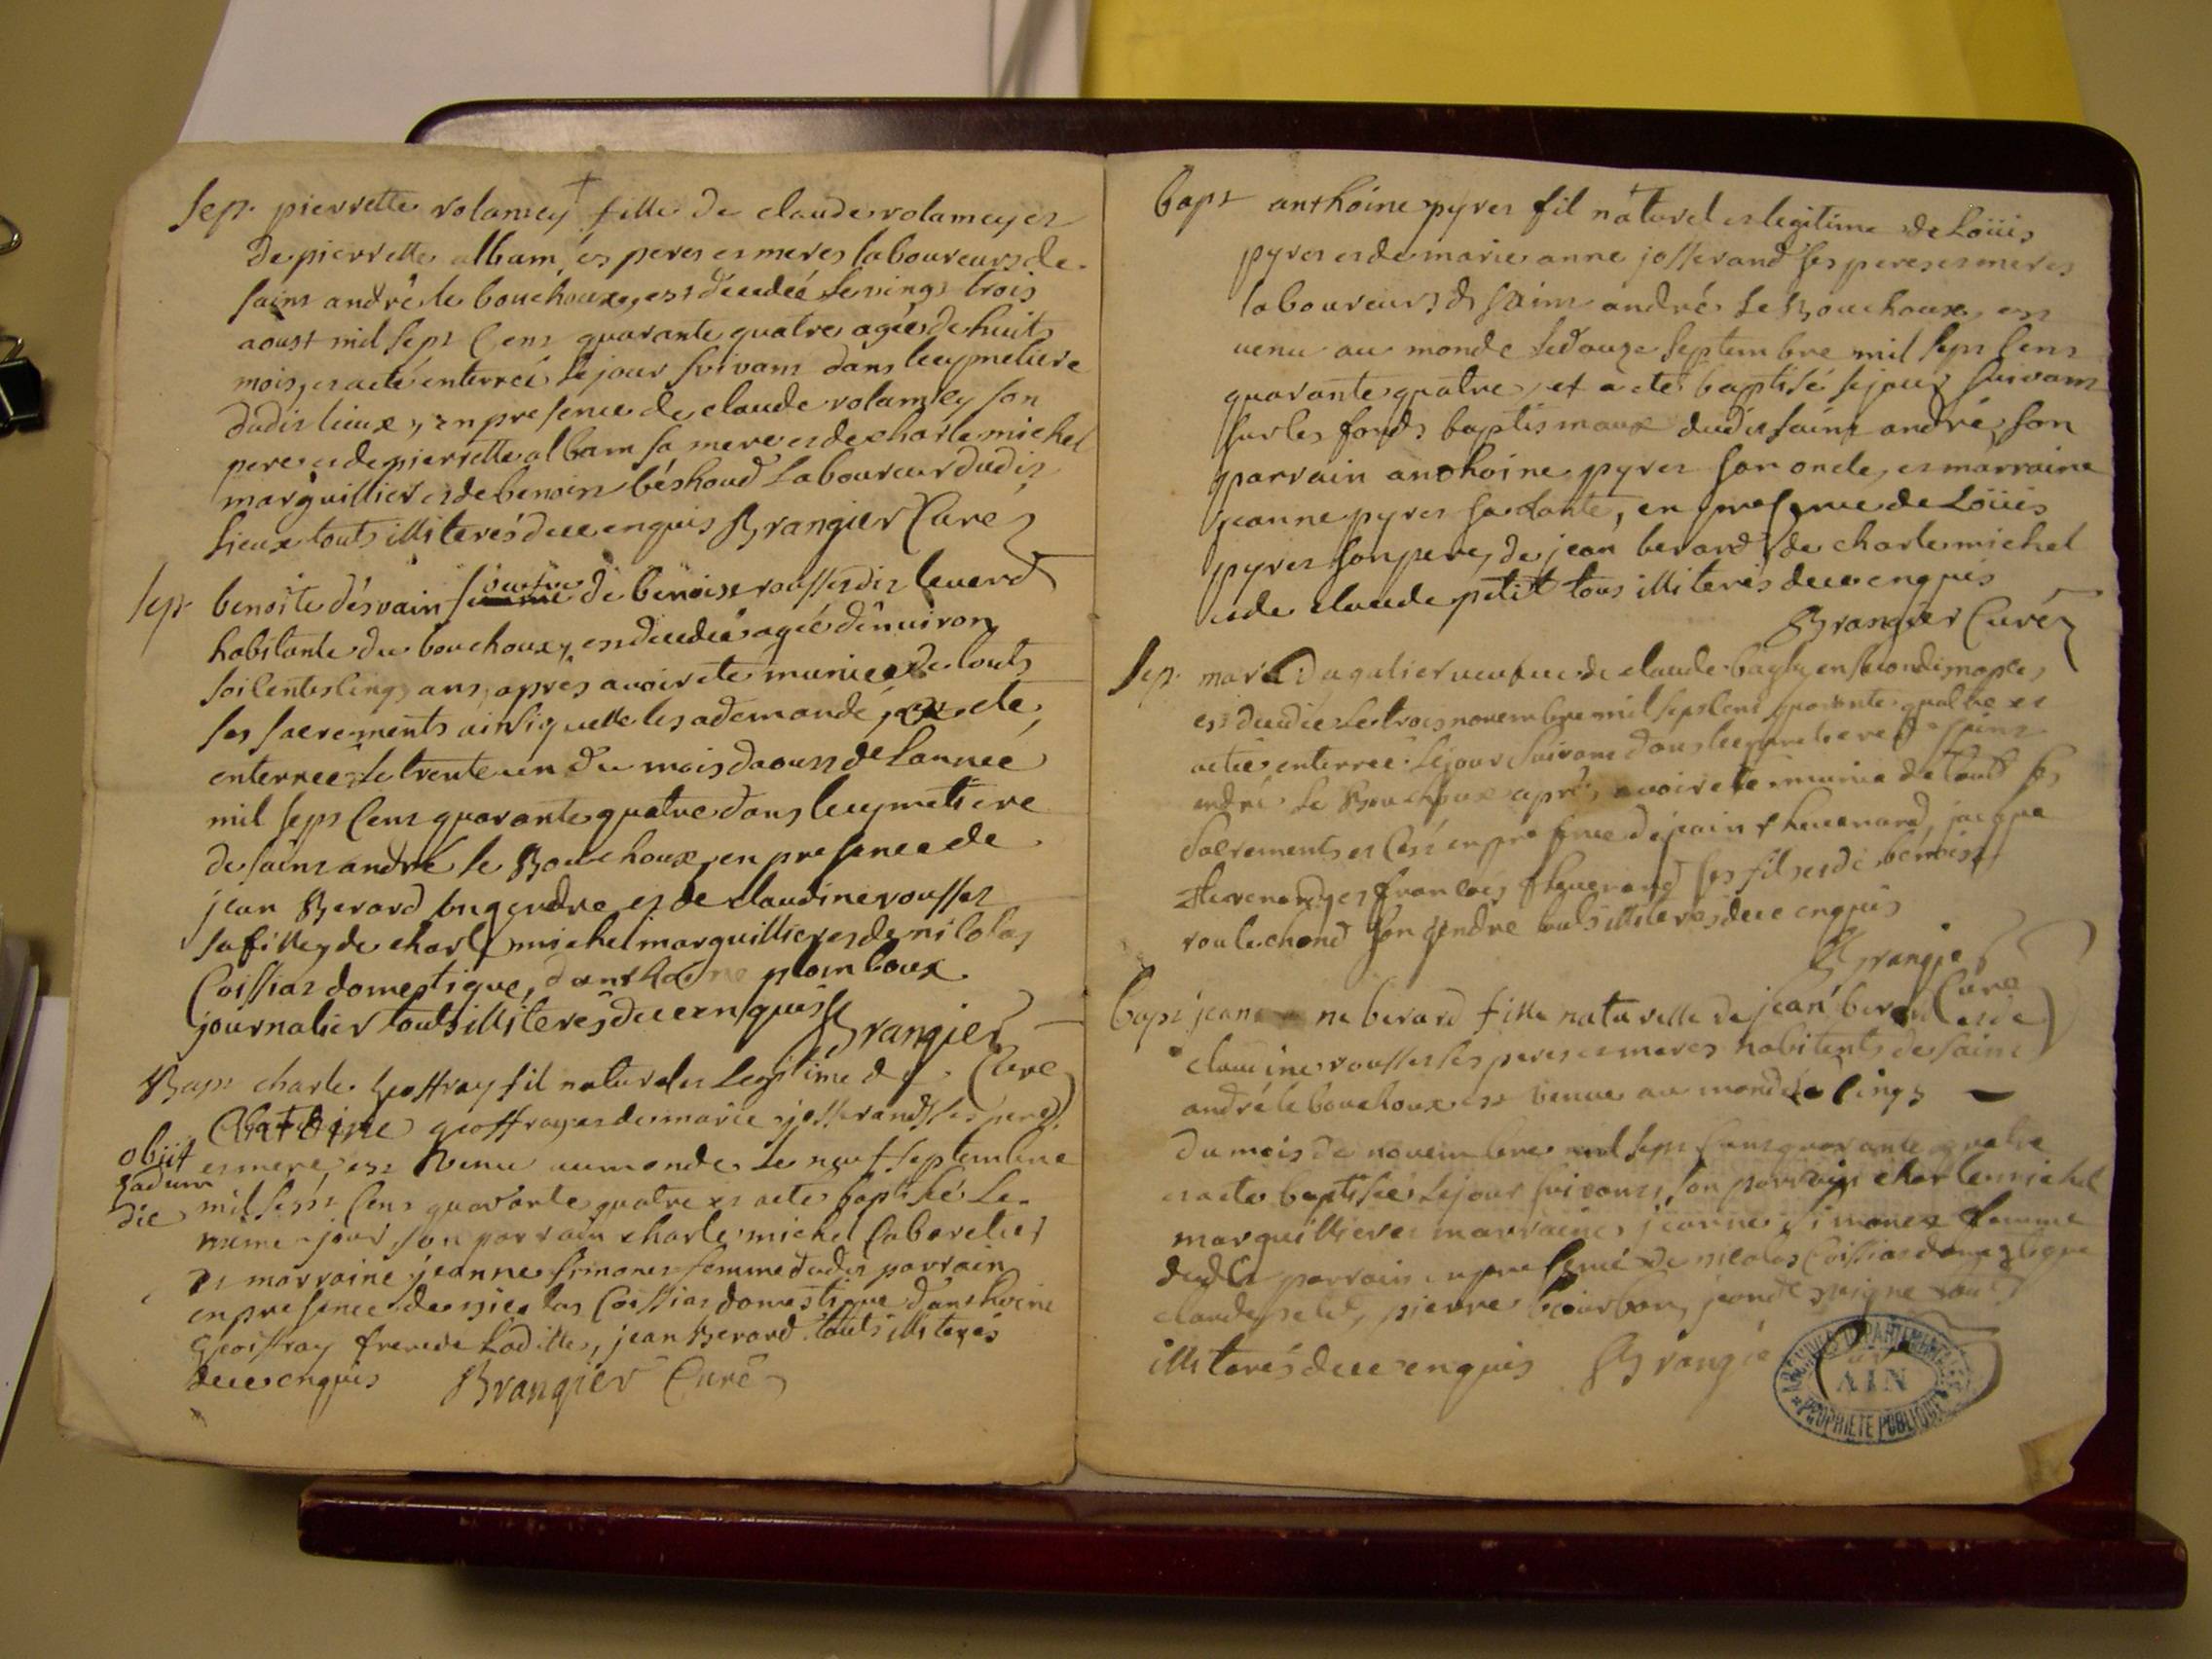 Sep. pierrette rolamey fille de claude rolamey et
de pierrette albam, és peres et meres laboureurs de
saint andré le bouchoux, est deudeé le vingt trois
aoust mil sept Cent quarante quatre agée de huits
mois, et a eté enterreé le jour suivant dans le cymetiere
dudit lieux, en presence de claude rolamey son
pere et de pierrette albam sa mere et de charle michel
marguillier et de benoist béshoud laboureur dudit
lieux touts illiterés de ce enquis Brangier Curé
Sep. benoite désvain veufve de benoist rousset dit leverd
habitante du bouchoux, est deudeé ageé dênuiron
soisente cinq ans, apres avoir eté munie de touts
ses sacrements ainsi quelle les a demandé, et a eté
enterreé le trente un du mois daoust de Lanneé
mil sept Cent quarante quatre dans le cymetiere
de saint andré le Bouchoux, en presence de
jean Berard son gendre et de claudine rousset
sa fille, de charle michel marguillier et de nicolas
Coissiat domestique, danthoine plomboux
journalier touts illiterés de ce enquis Brangier
Curé
Bapt charle geoffray fil naturel et Legitime d
Antoine geoffray et de marie josserand ses pere
et mere, est venu au monde le neuf septembre
obiit
eadem
die
mil sept Cent quarante quatre et a eté baptisé le
méme jour, son parrain charle michel Cabaretier
et marraine jeanne simonet femme dudit parrain
en presence de nicolas Coissiat domestique danthoine
geoffray frere de Ladite, jean Berard touts illiterés
de ce enquis Brangier Curé
bapt anthoine pyret fil naturel et legitime de Loüis
pyret et de marie anne josserand ses peres et meres
laboureurs d saint andré le Bouchoux, est
venu au monde le douze septembre mil sept Cent
quarante quatre, et a eté baptisé le jour suivant
sur les fonds baptismaux dudit saint andré, son
parrain anthoine pyret son oncle, et marraine
jeanne pyret sa tante, en presence de Loüis
pyret son pere, de jean berard de charle michel
et de claude petit tous illiterés de ce enquis
Brangier Curé
Sep. veufve de claude bayle en secondes nopces
est deudeé le trois novembre mil sept Cent quarante quatre et
a eté enterreé le jour suivant dans le cymetiere d saint
andré le Bouchoux apres avoir eté munie de touts ses
sacrements et Cest en presence de jacque
thevenard, et francois thevenard ses fils et de benoist
son gendre touts illiterés de ce enquis
Brangier
Curé
bapt jeanne berard fille naturelle de jean berard et de
claudine rousset ses peres et meres habitents de saint
andré le bouchoux est venue au monde le cinq
du mois de novembre mil sept Cent quarante quatre
et a eté baptiseé le jour suivant, son parrain charle michel
marguillier et marraine jeanne simonet femme
dudit parrain en presence de nicolas Coissiat domestique
claude petit, pierre bourbon, touts
illiterés de ce enquis Brangie
ARCHIVES DEPARTEMENTALES
AIN
PROPRIETE PUBLIQUE